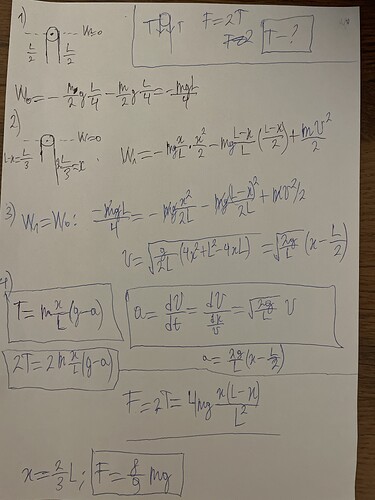 1)
W=0
L/2 L/2
T T
F=2T
T-?
W₀=-m/2 g L/4 - m/2 g L/4 = -mgL/4
2)
W=0
L-x=L/3 2L/3=x
W₁=-mgx/L·x/2-mg(L-x)/L((L-x)/2)+mv²/2
3) W₁=W₀: -mgL/4=-mgx²/2L-mg(L-x)²/2L+mv²/2
v=√(g/2L(4x²+L²-4xL))=√(2g/L)(x-L/2)
4)
T=m x/L(g-a)
a=dv/dt=dv/(dx/v)=√(2g/L) v
2T=2m x/L(g-a)
a=2g/L(x-L/2)
F=2T=4mg x(L-x)/L²
x=2/3L; F=8/9 mg